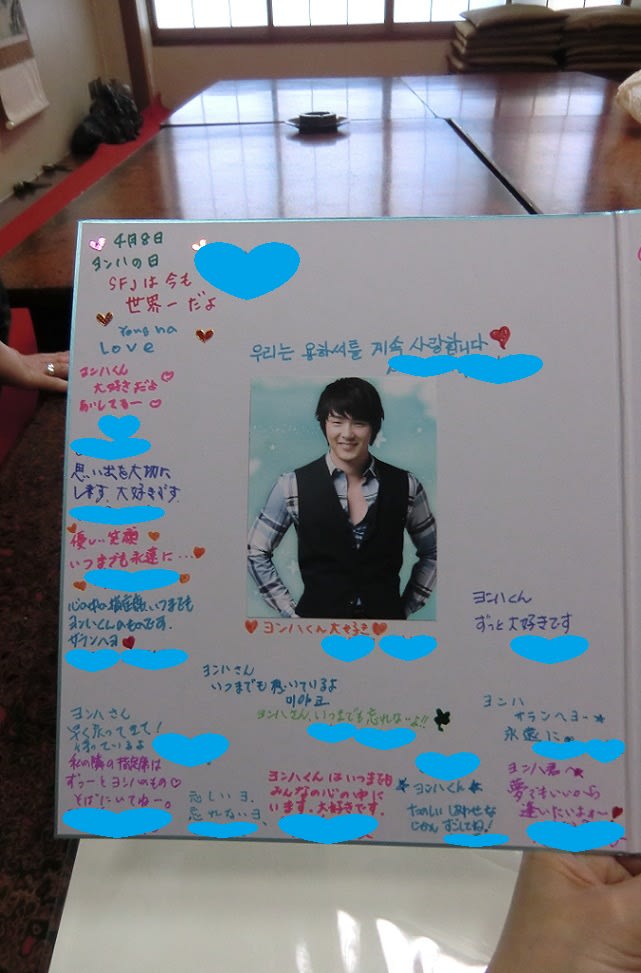 4月8日
ヨンハの日
SFJは今も
世界一だよ
Yong ha
Love
우리는 용하씨를 계속 사랑합니다
ヨンハくん
大好きだよ
あいしてるー
思い出を大切に
します。大好きです
優しい笑顔
いつまでも永遠に・・・
いつまでも
ヨンハくんのものです。
サランヘヨ
ヨンハくん大好き
ヨンハくん
ずっと大好きです
ヨンハさん
いつまでも思いているよ
미야코
ヨンハさん、いつまでも忘れないよ!!
ヨンハさん
早く戻ってきて!
待っているよ
私の隣の指定席は
ずぅーとヨンハのもの
そばにいてねー。
恋しいヨ、
忘れないヨ、
ヨンハくんはいつまでも
みんなの心の中に
います。大好きです。
ヨンハくん
たのしい しあわせな
じかん すごしてね!
ヨンハ
サランヘヨー
永遠に。
ヨンハ君へ
夢でもいいから
逢いたいよぉ〜